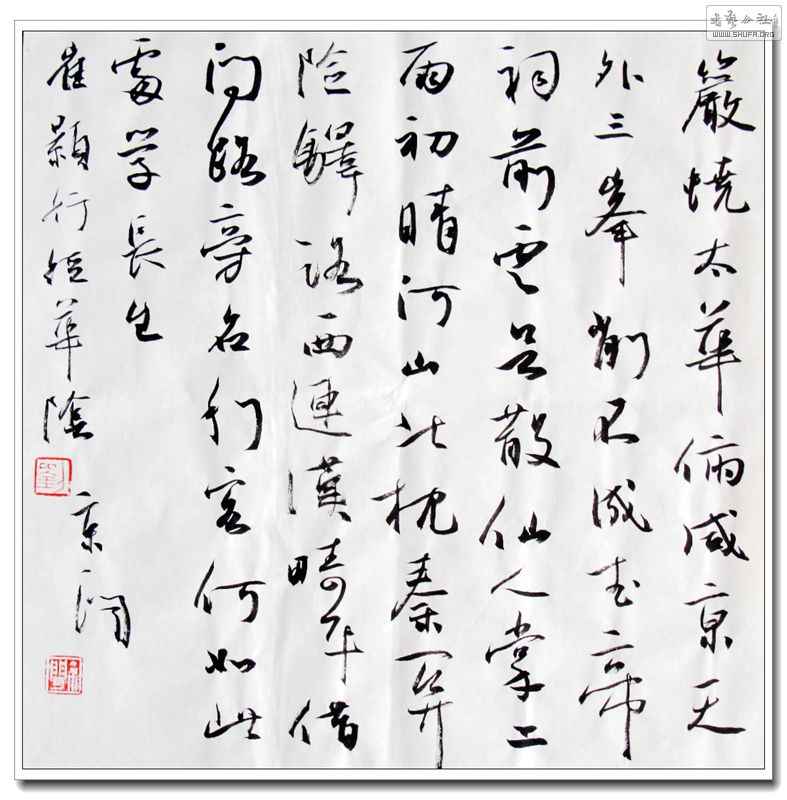 嚴燒太華俯咸京天
外三峯削不成武帝
祠前雲欲散仙人掌上
雨初晴河山北枕秦關
險驛路西連漢疇平借
問路旁名利客何如此
處学長生
崔顥行經華陰
劉
京
書藝公社
WWW.SHUFA.ORG